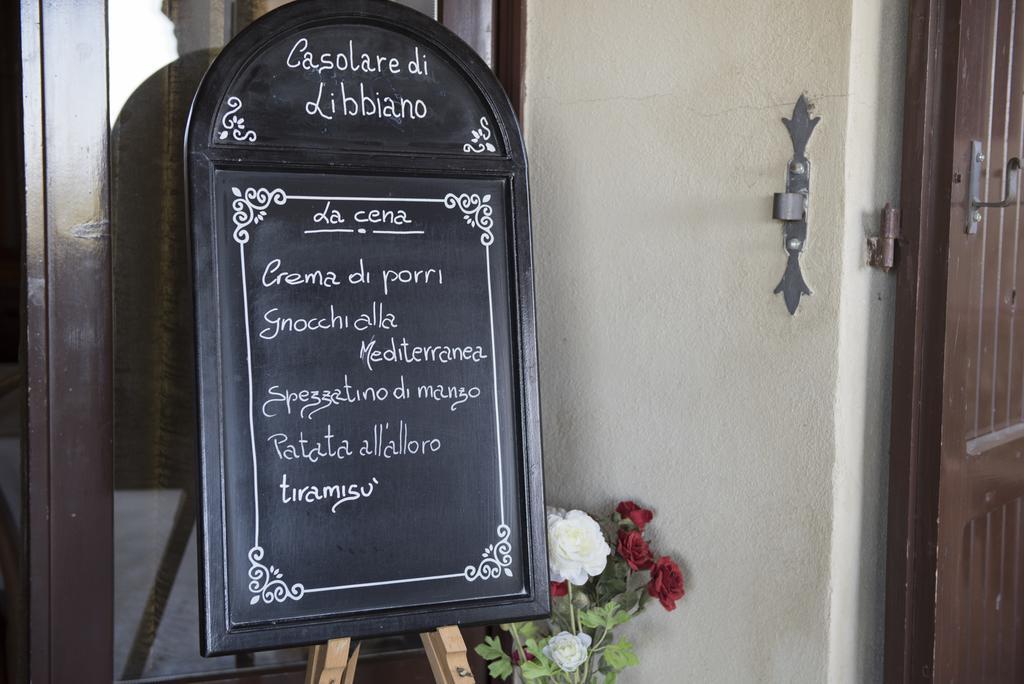 Casolare di
Libbiano
La cena
Crema di porri
Gnocchi alla
Mediterranea
Spezzatino di manzo
Patata all'alloro
tiramisu'